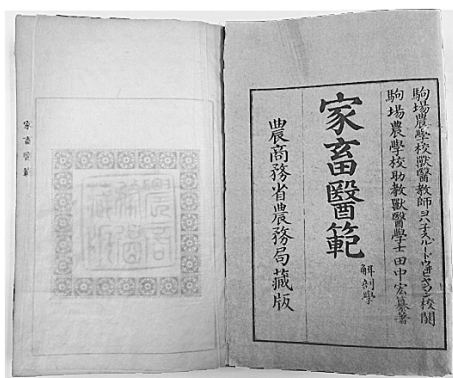 駒場農學校獸醫教師ヨハネスルードウィヒヤンソン校閲
駒場農學校助教獸醫學士田中宏纂著
家畜醫範
解剖學
農商務省農務局藏版
家畜醫範